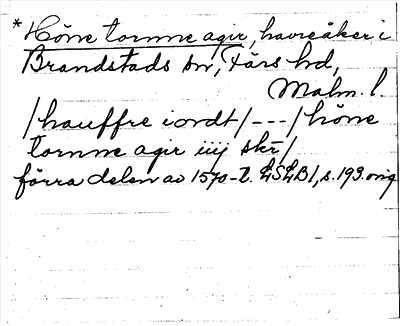 * Höne tornne agir, havreåker i
Brandstads sn, Färs hd,
Malm. l.
/hauffre iordt/---/höne
tornne agir iiij skr/
förra delen av 1570-t. LSLB1, s. 193. orig